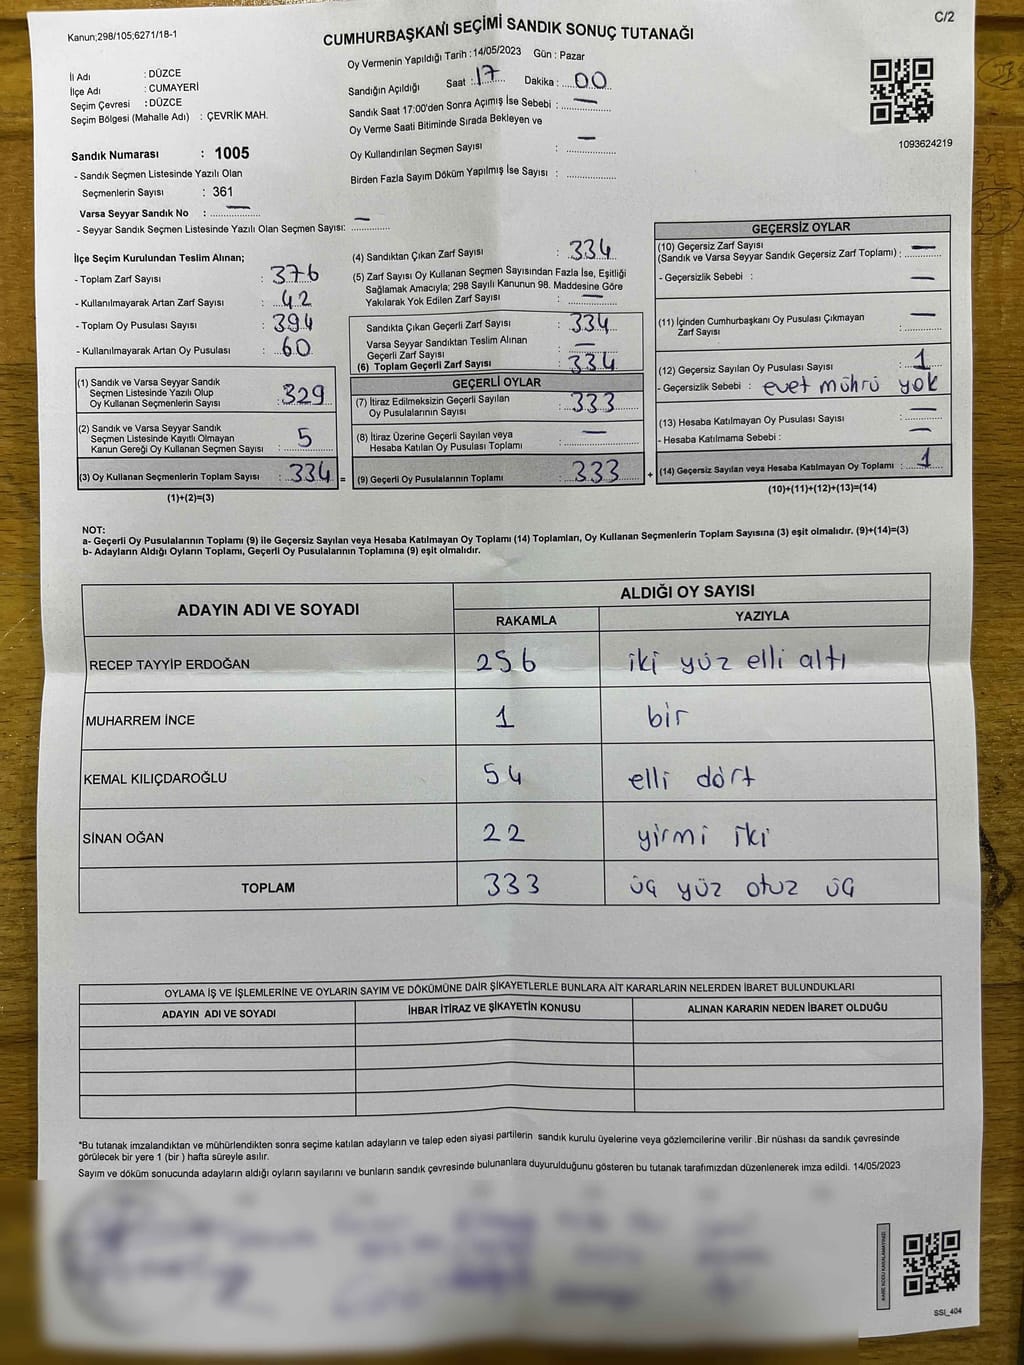 Kanun;298/105;6271/18-1
C/2
CUMHURBAŞKANI SEÇİMİ SANDIK SONUÇ TUTANAĞI
Oy Vermenin Yapıldığı Tarih : 14/05/2023 Gün : Pazar
İl Adı : DÜZCE
İlçe Adı : CUMAYERİ
Seçim Çevresi : DÜZCE
Seçim Bölgesi (Mahalle Adı) : ÇEVRİK MAH.
Sandığın Açıldığı Saat : 17 Dakika : 00
Sandık Saat 17:00'den Sonra Açımış İse Sebebi : —
Oy Verme Saati Bitiminde Sırada Bekleyen ve
Oy Kullandırılan Seçmen Sayısı : —
Birden Fazla Sayım Döküm Yapılmış İse Sayısı :
1093624219
Sandık Numarası : 1005
- Sandık Seçmen Listesinde Yazılı Olan
Seçmenlerin Sayısı : 361
Varsa Seyyar Sandık No : —
- Seyyar Sandık Seçmen Listesinde Yazılı Olan Seçmen Sayısı: —
İlçe Seçim Kurulundan Teslim Alınan;
- Toplam Zarf Sayısı : 376
- Kullanılmayarak Artan Zarf Sayısı : 42
- Toplam Oy Pusulası Sayısı : 394
- Kullanılmayarak Artan Oy Pusulası : 60
(1) Sandık ve Varsa Seyyar Sandık
Seçmen Listesinde Yazılı Olup
Oy Kullanan Seçmenlerin Sayısı : 329
(2) Sandık ve Varsa Seyyar Sandık
Seçmen Listesinde Kayıtlı Olmayan
Kanun Gereği Oy Kullanan Seçmen Sayısı : 5
(3) Oy Kullanan Seçmenlerin Toplam Sayısı : 334 =
(1)+(2)=(3)
(4) Sandıktan Çıkan Zarf Sayısı : 334
(5) Zarf Sayısı Oy Kullanan Seçmen Sayısından Fazla İse, Eşitliği
Sağlamak Amacıyla; 298 Sayılı Kanunun 98. Maddesine Göre
Yakılarak Yok Edilen Zarf Sayısı : —
Sandıkta Çıkan Geçerli Zarf Sayısı : 334
Varsa Seyyar Sandıktan Teslim Alınan
Geçerli Zarf Sayısı : —
(6) Toplam Geçerli Zarf Sayısı : 334
GEÇERLİ OYLAR
(7) İtiraz Edilmeksizin Geçerli Sayılan
Oy Pusulalarının Sayısı : 333
(8) İtiraz Üzerine Geçerli Sayılan veya
Hesaba Katılan Oy Pusulası Toplamı : —
(9) Geçerli Oy Pusulalarının Toplamı : 333 +
GEÇERSİZ OYLAR
(10) Geçersiz Zarf Sayısı
(Sandık ve Varsa Seyyar Sandık Geçersiz Zarf Toplamı) : —
- Geçersizlik Sebebi : —
(11) İçinden Cumhurbaşkanı Oy Pusulası Çıkmayan
Zarf Sayısı : —
(12) Geçersiz Sayılan Oy Pusulası Sayısı : 1
- Geçersizlik Sebebi : evet mührü yok
(13) Hesaba Katılmayan Oy Pusulası Sayısı : —
- Hesaba Katılmama Sebebi : —
(14) Geçersiz Sayılan veya Hesaba Katılmayan Oy Toplamı : 1
(10)+(11)+(12)+(13)=(14)
NOT:
a- Geçerli Oy Pusulalarının Toplamı (9) ile Geçersiz Sayılan veya Hesaba Katılmayan Oy Toplamı (14) Toplamları, Oy Kullanan Seçmenlerin Toplam Sayısına (3) eşit olmalıdır. (9)+(14)=(3)
b- Adayların Aldığı Oyların Toplamı, Geçerli Oy Pusulalarının Toplamına (9) eşit olmalıdır.
ADAYIN ADI VE SOYADI ALDIĞI OY SAYISI
RAKAMLA YAZIYLA
RECEP TAYYİP ERDOĞAN 256 iki yüz elli altı
MUHARREM İNCE 1 bir
KEMAL KILIÇDAROĞLU 54 elli dört
SİNAN OĞAN 22 yirmi iki
TOPLAM 333 üç yüz otuz üç
OYLAMA İŞ VE İŞLEMLERİNE VE OYLARIN SAYIM VE DÖKÜMÜNE DAİR ŞİKAYETLERLE BUNLARA AİT KARARLARIN NELERDEN İBARET BULUNDUKLARI
ADAYIN ADI VE SOYADI İHBAR İTİRAZ VE ŞİKAYETİN KONUSU ALINAN KARARIN NEDEN İBARET OLDUĞU
*Bu tutanak imzalandıktan ve mühürlendikten sonra seçime katılan adayların ve talep eden siyasi partilerin sandık kurulu üyelerine veya gözlemcilerine verilir .Bir nüshası da sandık çevresinde
görülecek bir yere 1 (bir ) hafta süreyle asılır.
Sayım ve döküm sonucunda adayların aldığı oyların sayılarını ve bunların sandık çevresinde bulunanlara duyurulduğunu gösteren bu tutanak tarafımızdan düzenlenerek imza edildi. 14/05/2023
SSI_404